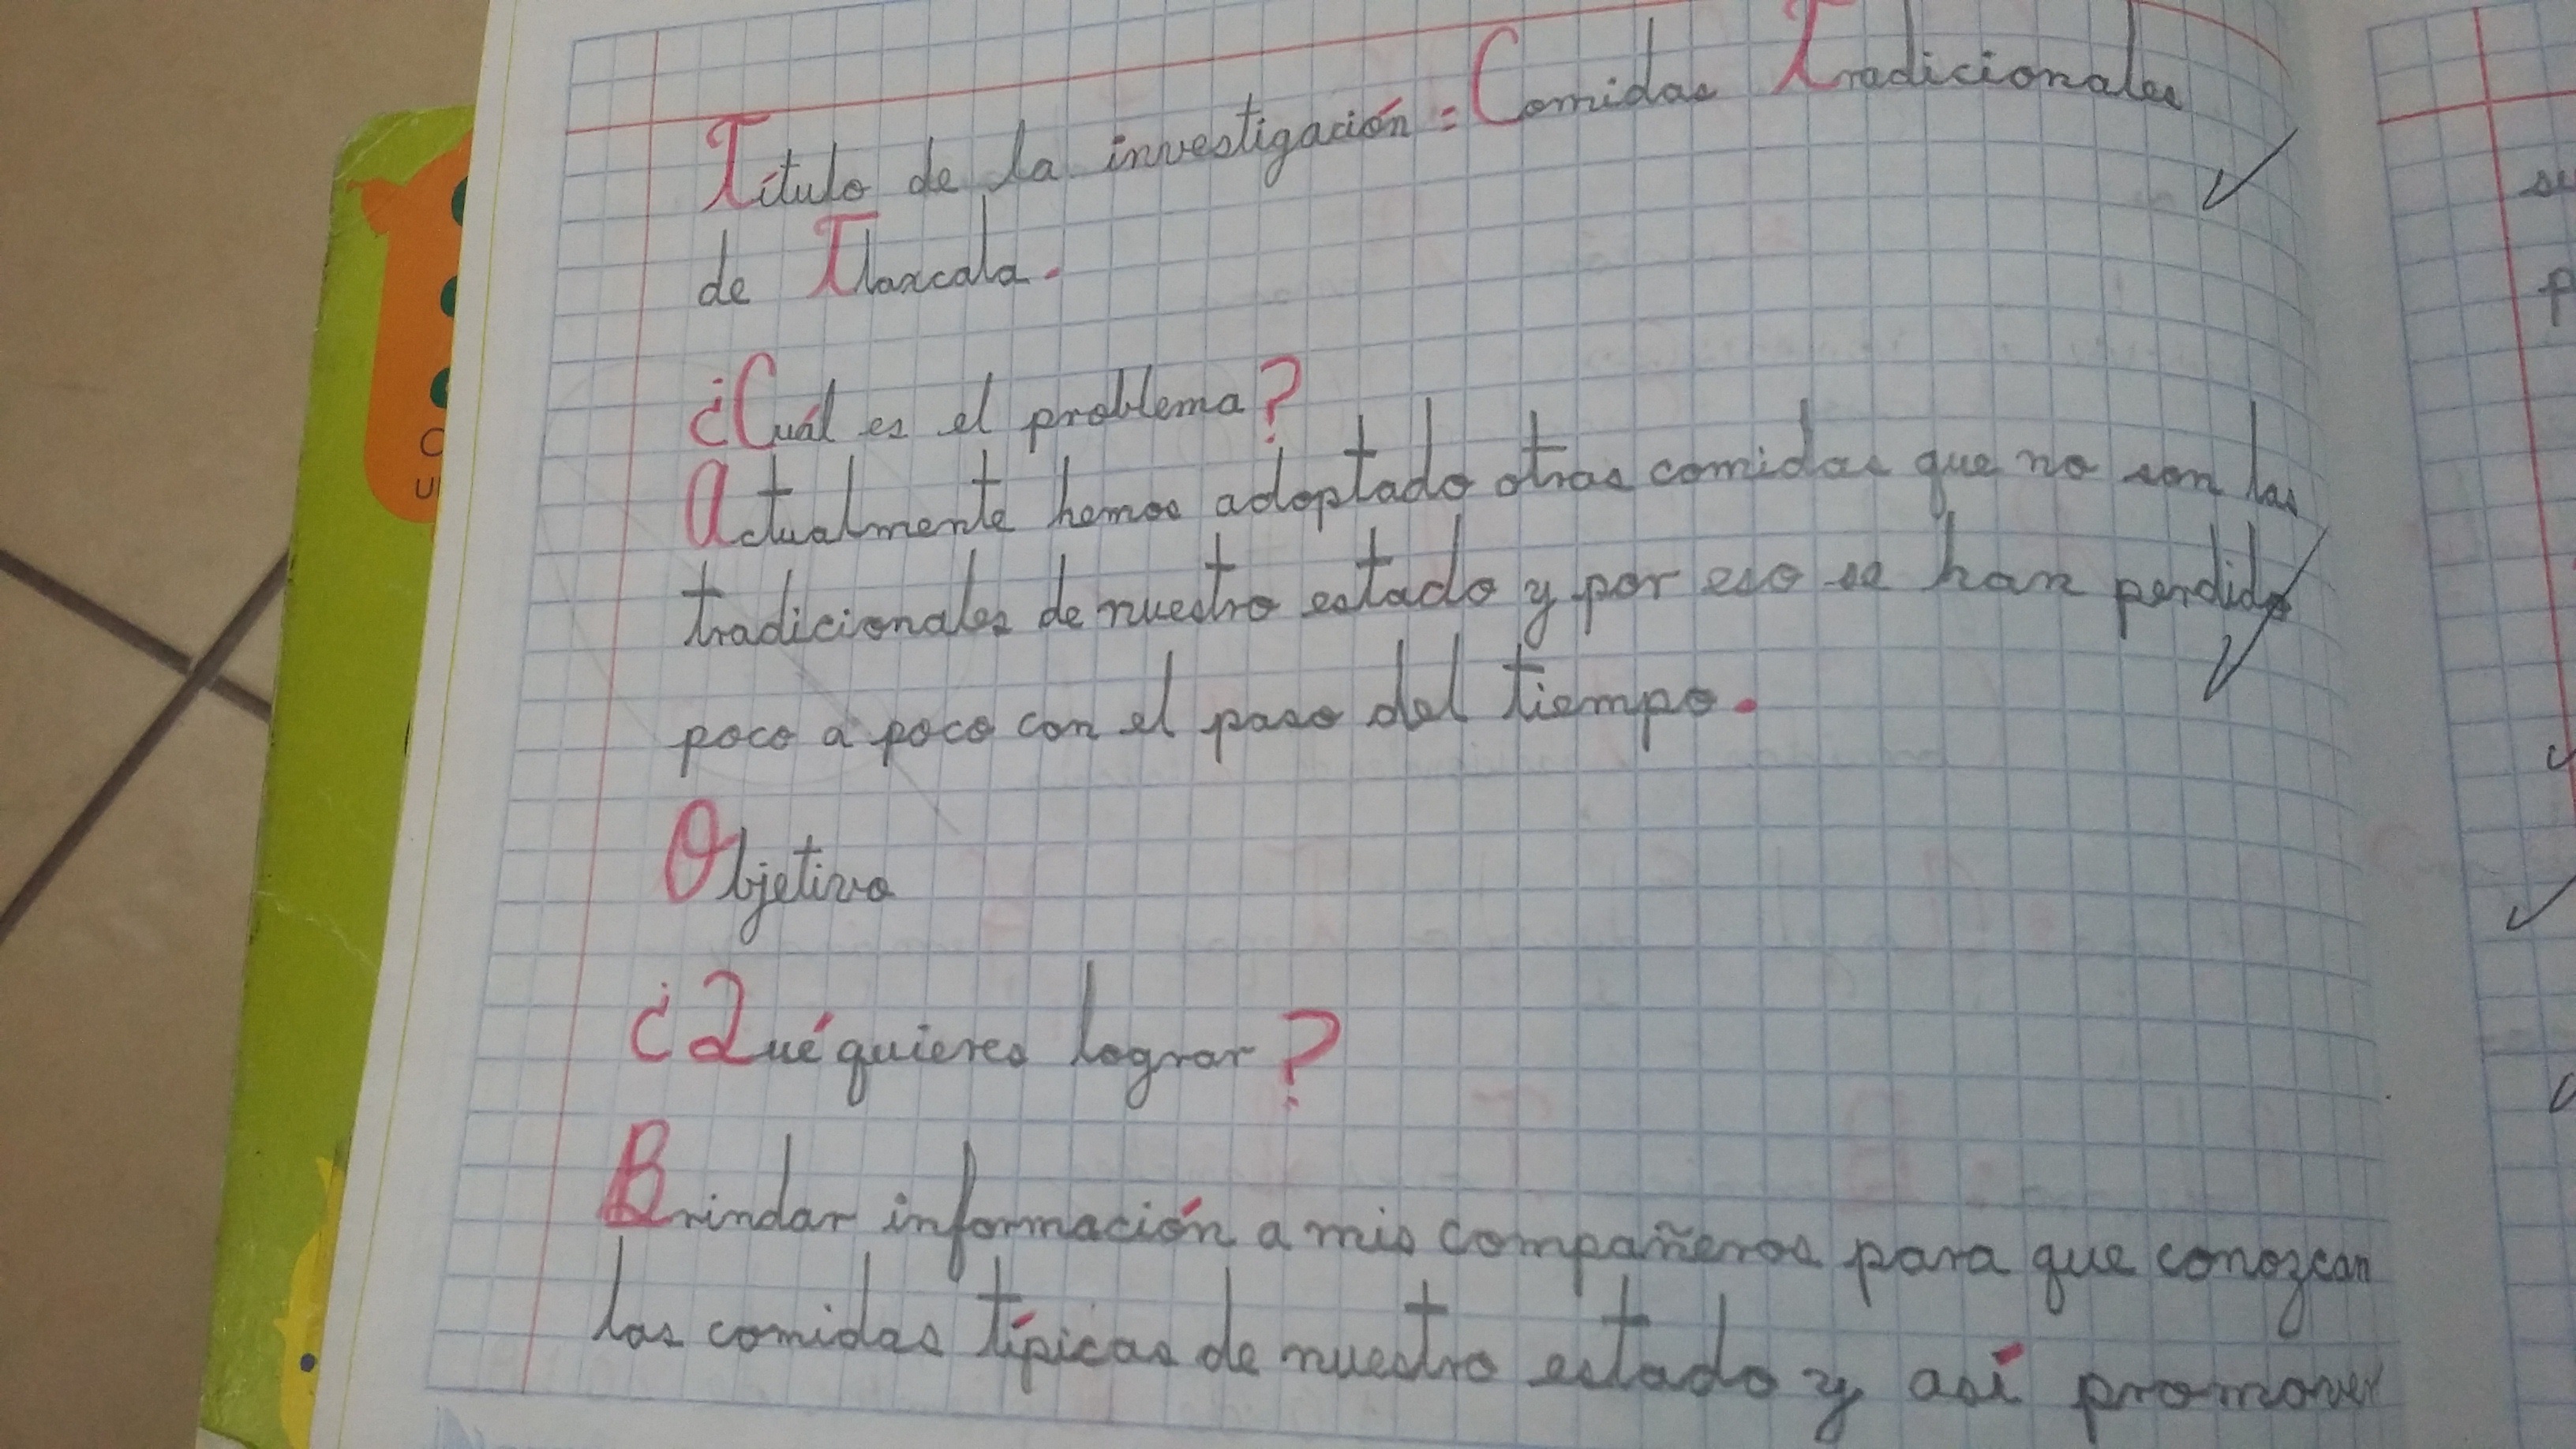 Título de la investigación = Comidas Tradicionales
de Tlaxcala.
¿Cuál es el problema?
Actualmente hemos adoptado otras comidas que no son las
tradicionales de nuestro estado y por eso se han perdido
poco a poco con el paso del tiempo.
Objetivo
¿Qué quieres lograr?
Brindar información a mis compañeros para que conozcan
las comidas típicas de nuestro estado y así promover